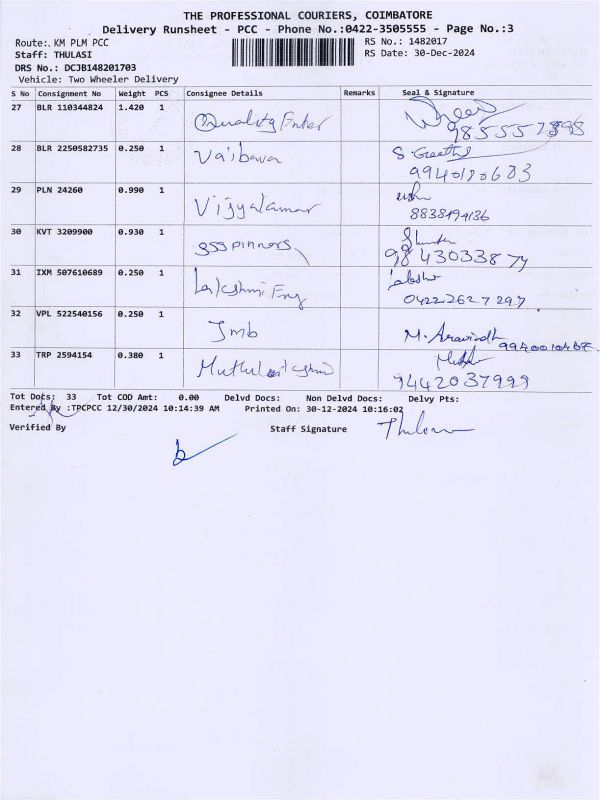 THE PROFESSIONAL COURIERS, COIMBATORE
Delivery Runsheet - PCC - Phone No.:0422-3505555 - Page No.:3
Route:. KM PLM PCC
RS No.: 1482017
Staff: THULASI
RS Date: 30-Dec-2024
DRS No.: DCJB148201703
Vehicle: Two Wheeler Delivery
S No Consignment No Weight PCS Consignee Details Remarks Seal & Signature
27 BLR 110344824 1.420 1 Quality Enter
28 BLR 2250582735 0.250 1 Vaibava S. Geetha
9940180683
29 PLN 24260 0.990 1 Vijyalamar
8838194136
30 KVT 3209900 0.930 1 sss pinners
98430338 74
31 IXM 507610689 0.250 1 Lakshmi Eng
0422 262 7 297
32 VPL 522540156 0.250 1 Jmb M. Aravindh
9940010467
33 TRP 2594154 0.380 1 Muthulakshmi
9442037999
Tot Docs: 33 Tot COD Amt: 0.00 Delvd Docs: Non Delvd Docs: Delvy Pts:
Entered By :TPCPCC 12/30/2024 10:14:39 AM Printed On: 30-12-2024 10:16:02
Verified By Staff Signature